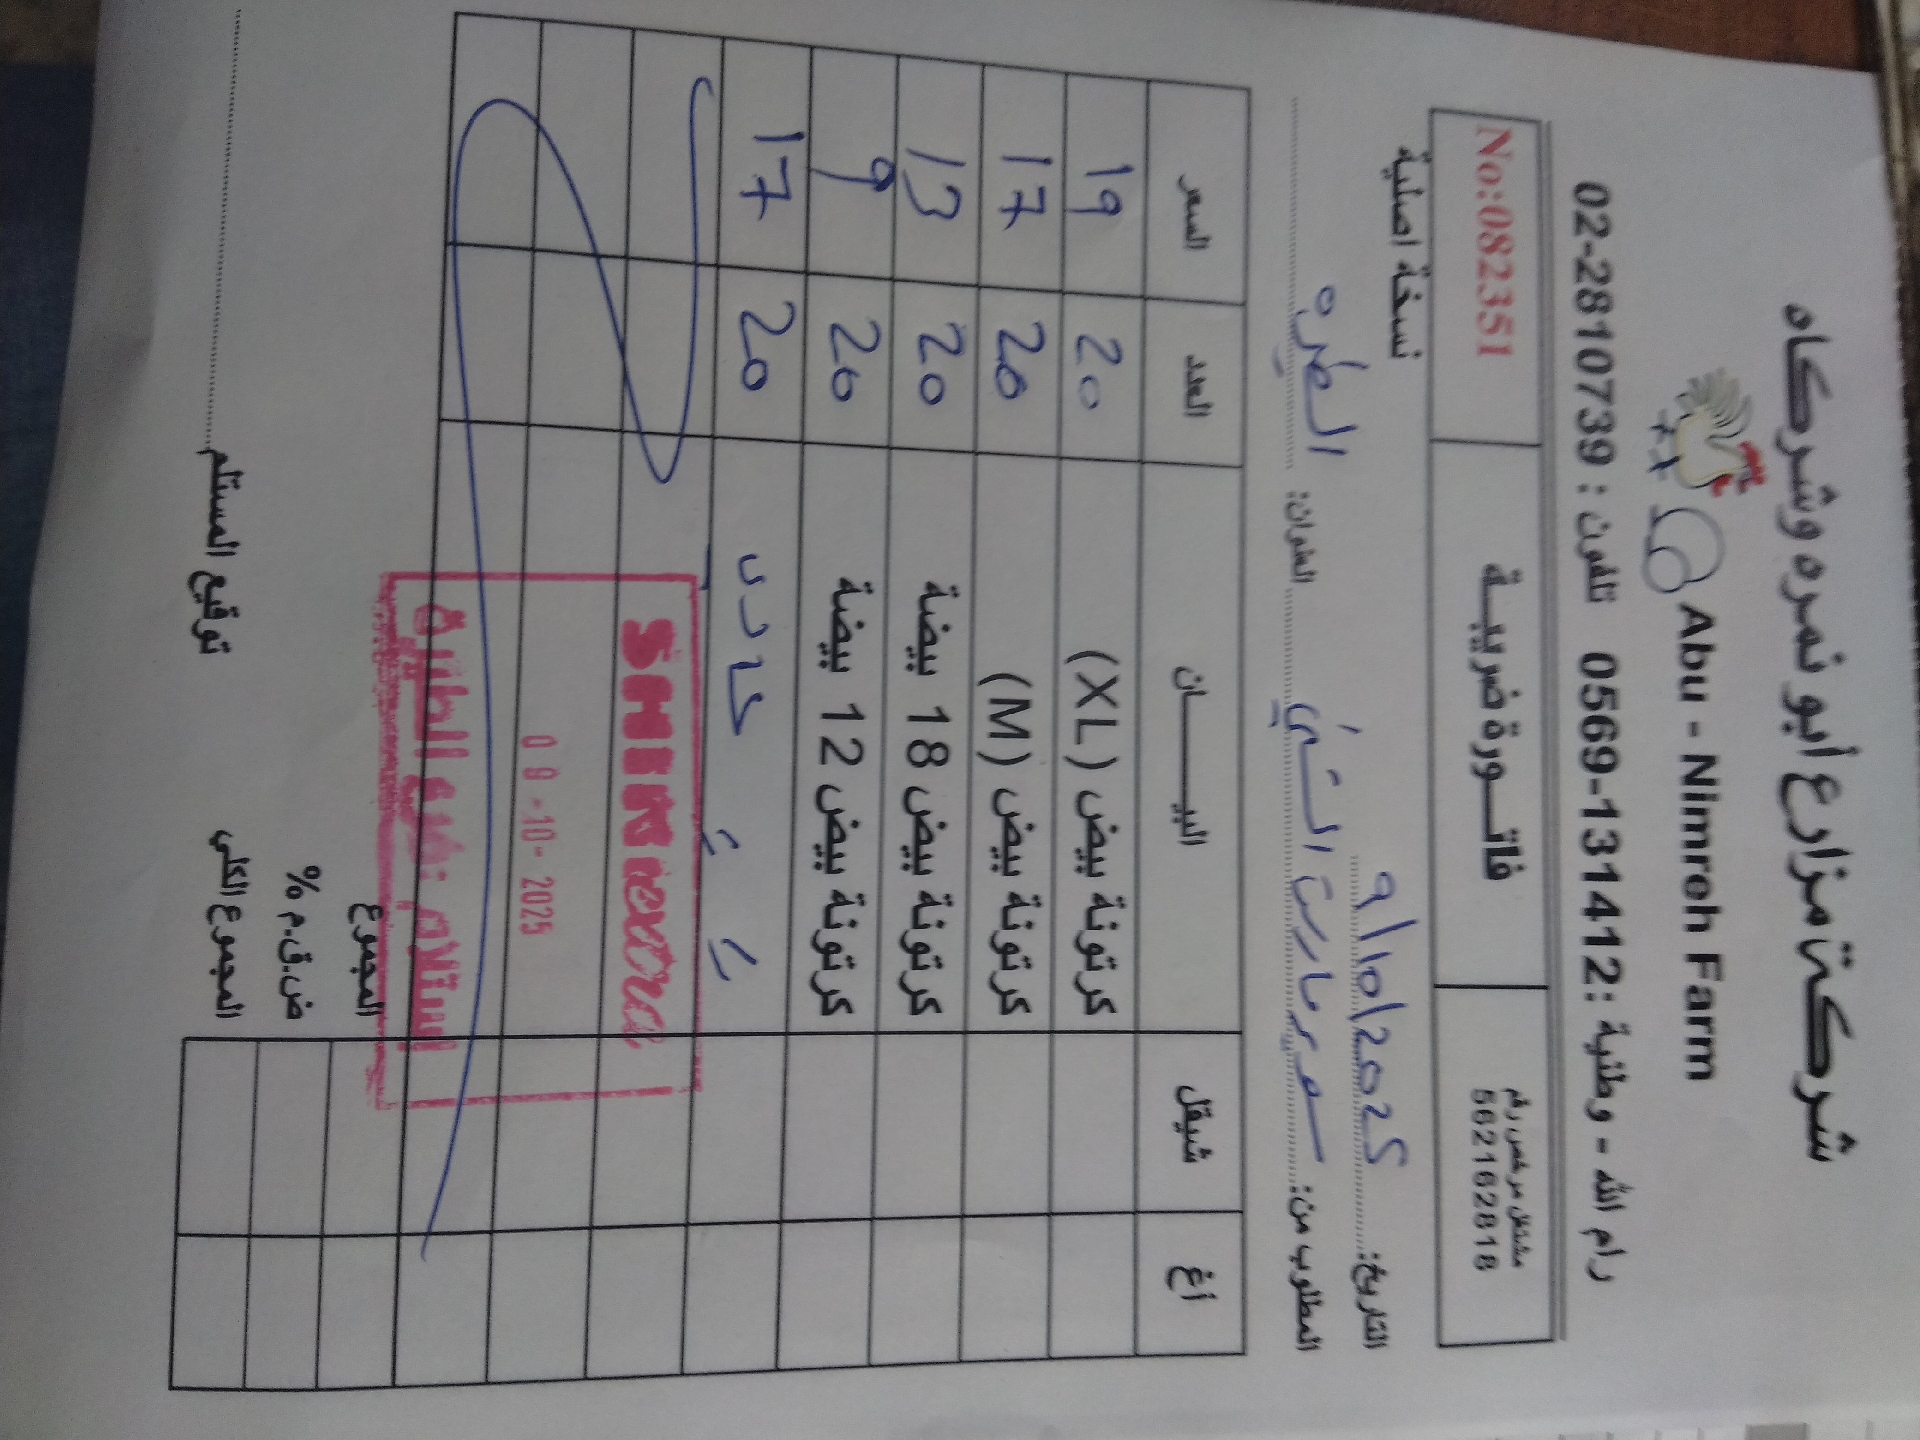 شركة مزارع أبو نمره وشركاه
Abu - Nimreh Farm
رام الله - وطنية : 0569-131412 تلفون : 02-2810739
مشتغل مرخص رقم 562162818
فاتـــورة ضريبـــة
No:082351
نسخة اصلية
التاريخ:
المطلوب من: سوبرماركت الشني العنوان: الطيره
البيـــــان العدد السعر شيقل أغ
كرتونة بيض (XL) 20 19
كرتونة بيض (M) 20 17
كرتونة بيض 18 بيضة 20 13
كرتونة بيض 12 بيضة 20 9
20 17
SHINI extra
09 -10- 2025
استلام : فرع الطيرة
المجموع
ض.ق.م %
المجموع الكلي
توقيع المستلم